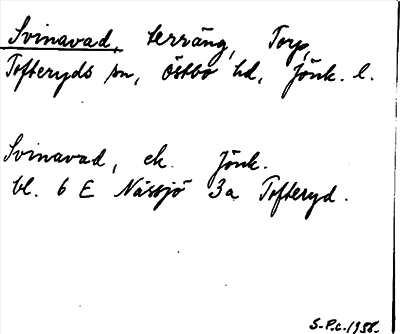 Svinavad, terräng, Torp,
Tofteryds sn, Östbo hd, Jönk. l.
Svinavad, ek. Jönk.
bl. 6 E Nässjö 3a Tofteryd.
S-P.C. 1958.